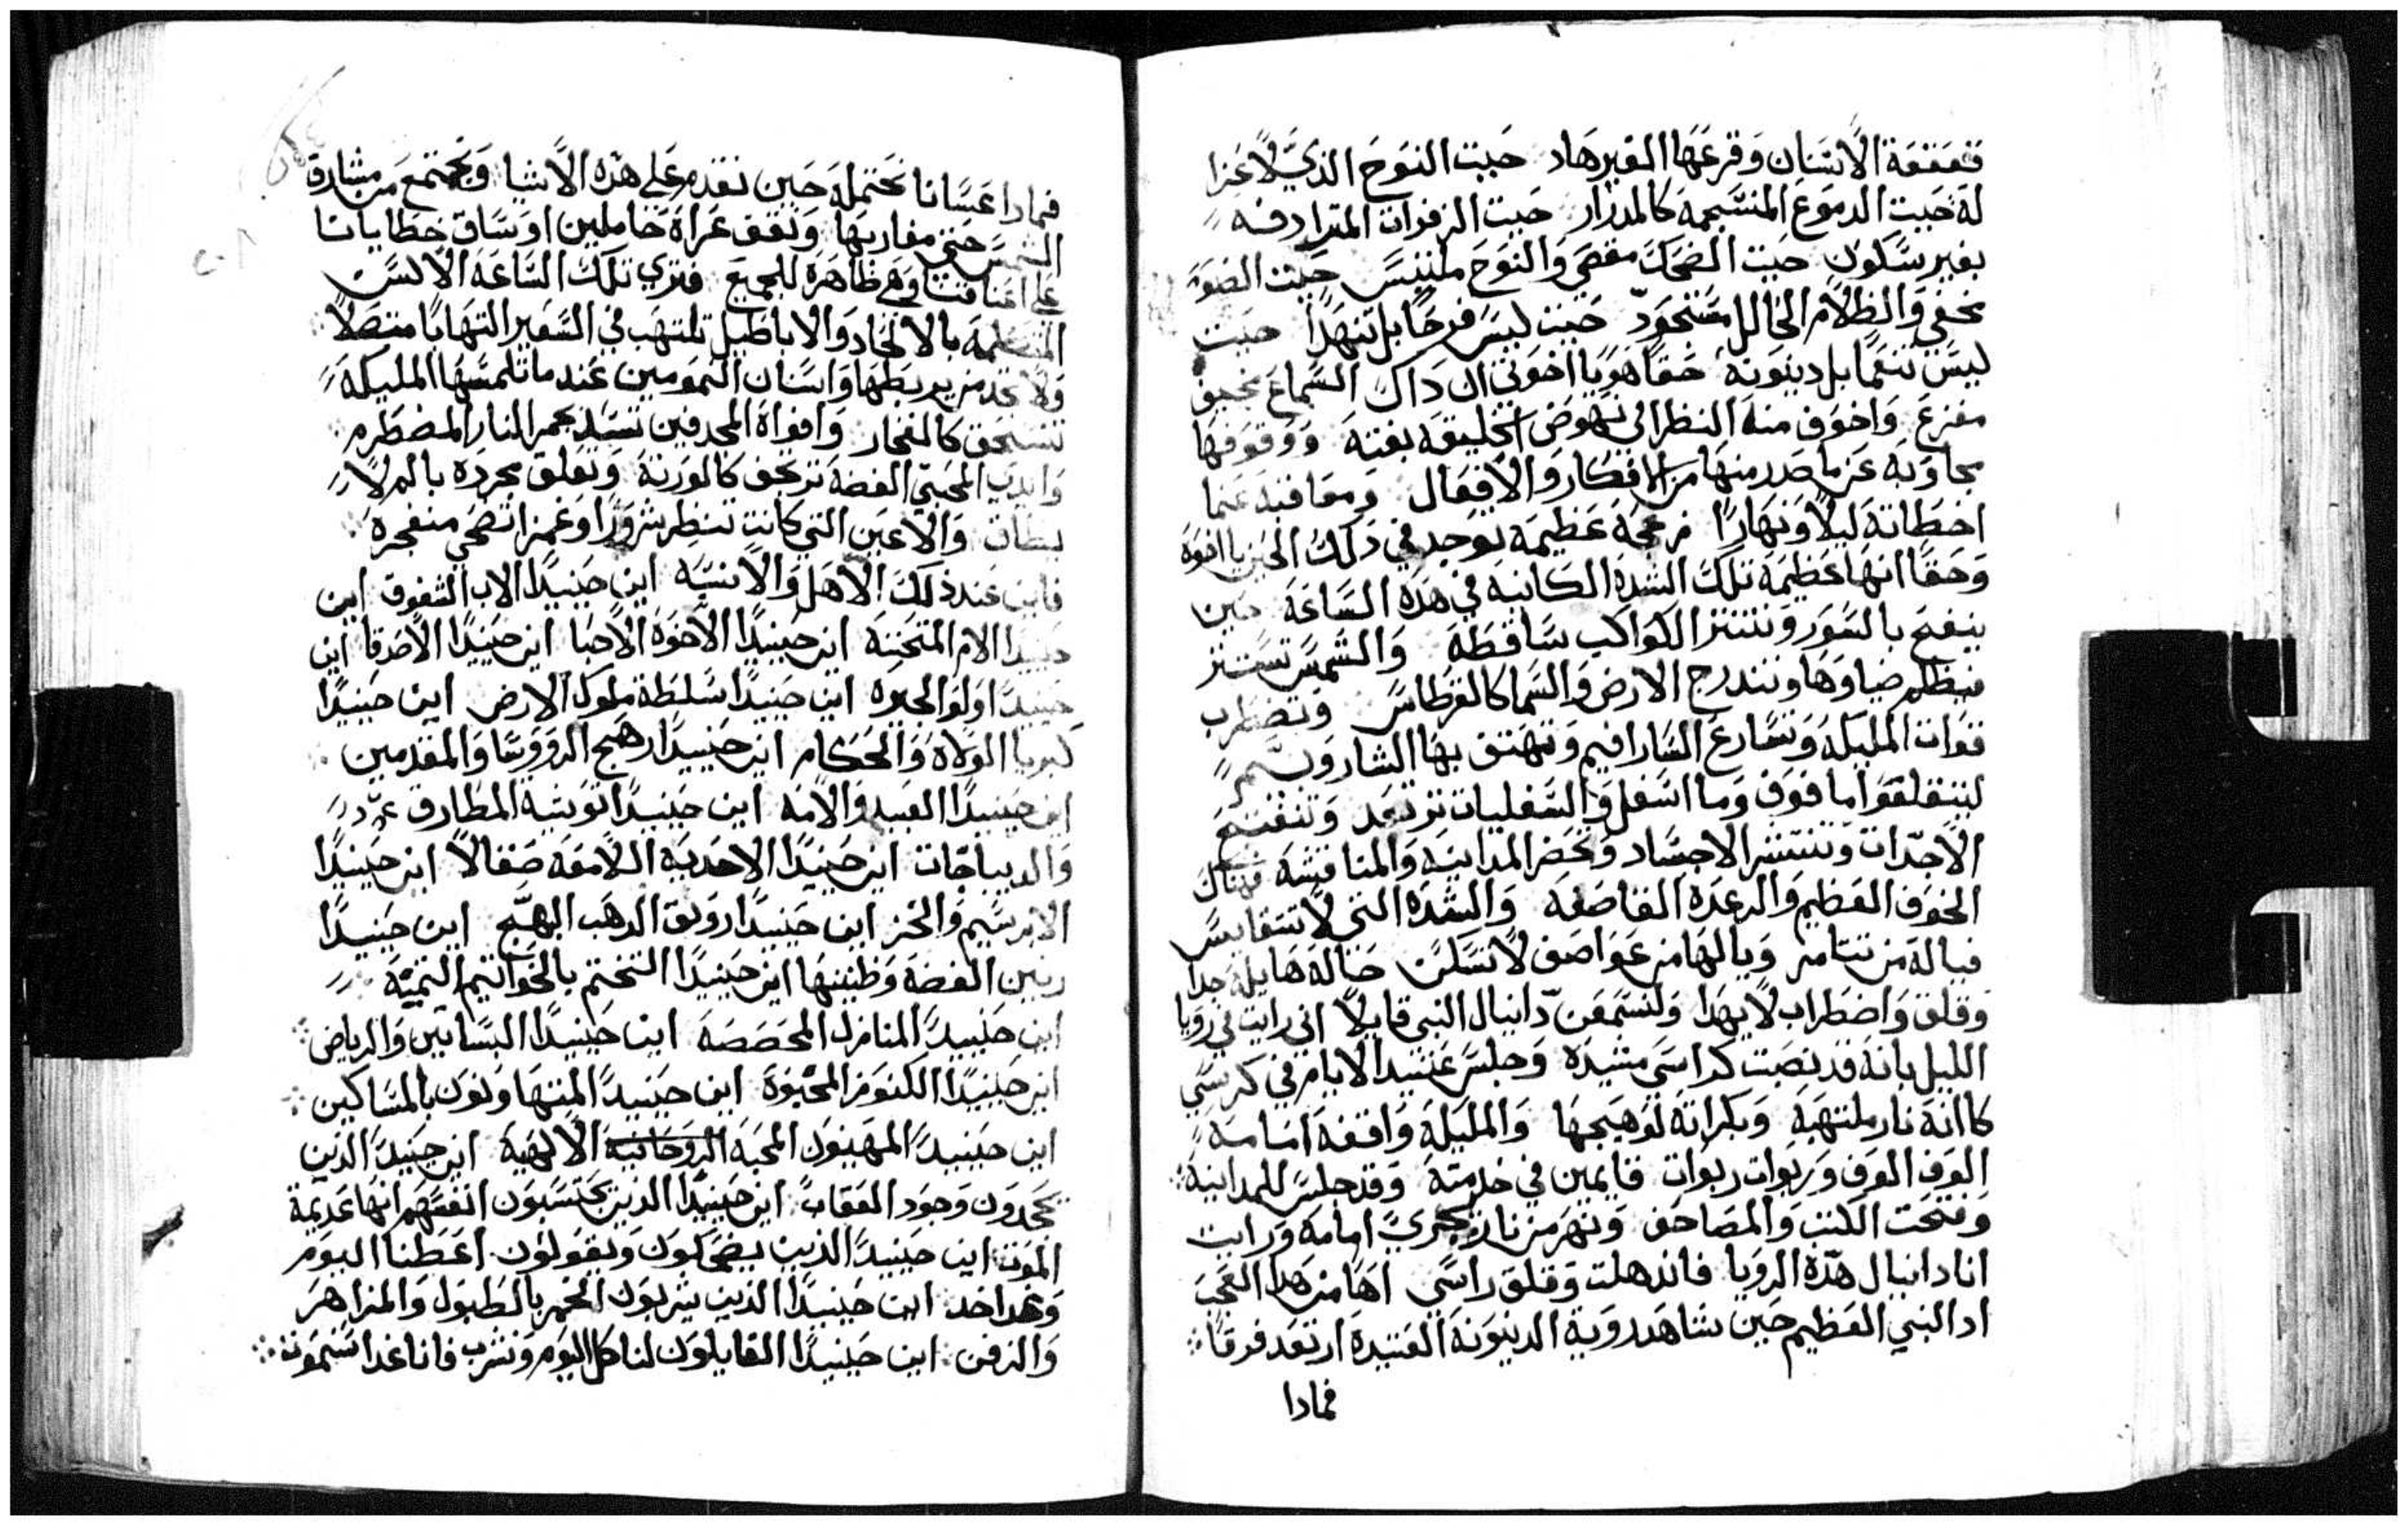 قعقعة الاسنان وقرعها الغير هاد حيت النوح الذي لا عزا
له حيت الدموع المنسجمه كالمدرار حيت الزفرات المترادفه
بغير سكون حيت الضحك مقصي والنوح ملتبس حيت الضو
مخفي والظلام الحالل مستحود حيت ليس فرحا بل تنهدا حيت
ليس تنعما بل دينونه حقا هو يا اخوتي ان داك السماع مخيف
مفزع واخوف منه النظر الي نهوض الخليقه بغته ووقوفها
مجاوبه عن ما صدر منها من الافكار والافعال ومعاقبه عما
اخطاته ليلا ونهارا زعجة عظيمه توجد في دلك الحين يا اخوه
وحقا انها عظيمه تلك الشده الكاينه في هده الساعه حين
ينفخ بالسور وتنتتر الكواكب ساقطه والشمس تستتر
فيظلم ضياوها وتندرج الارض والسما كالقرطاس وتضطرب
قوات المليكه وتسارع السارافيم وتهتف بها الشاروبيم
ليتقلقوا ما فوق وما اسفل والسفليات ترتعد وتنفتح
الاجدات وتنتشر الاجساد وتحضر المداينه والمناقشه فهناك
الخوف العظيم والرعده القاصفه والشده التي لا تتقايس
فياله من تتامر ويالها من عواصف لا تسكن حالة هايله جدا
وقلق واضطراب لا يهدا ولنستمعن دانيال النبي قايلا اني رايت في رويا
الليل بانه قد نصبت كراسي مشيده وجلس عتيد الايام في كرسي
كاانه نار ملتهبه وبكراته لوهيجها والمليكه واقفه امامه
الوف الوف وربوات ربوات قايمين في خدمته وقد جلس للمداينه
وفتحت الكتب والمصاحف ونهر من نار يجري امامه ورايت
انا دانيال هذه الرويا فاندهلت وقلق راسي اها من هدا العجب
اد النبي العظيم حين شاهد روية الدينونه العتيده ارتعد فرقا
فمادا
فمادا عسانا نحتمله حين نقدم علي هذه الاشيا ونجتمع من مشارق
الشمس حتي مغاربها ونقف عراة حاملين اوساق خطايانا
علي اعناقنا وهي ظاهره للجميع فتري تلك الساعه الالسن
المتكلمه بالالحاد والاباطيل تلتهب في السعير التهابا متصلا
ولا تجد من يربطها واسنان النمومين عندما تلمسها المليكه
تنسحق كالفخار وافواه المجدفين تسد بجمر النار المضطرم
وايدي المحبي الفضه ترتجف كالورقه وتعلق مجرده بالمرلا
يطاق والاعين التي كانت تنظر شزورا وغمزا تضحي منفجره
فاين عند ذلك الاهل والانسبه اين حينيدا الاب الشفوق اين
حينيدا الام المتحننه اين حينيدا الاخوه الاحبا اين حينيدا الاصدقا اين
حينيدا اولوا الجيره اين حينيدا سلطة ملوك الارض اين حينيدا
كبريا الولاه والحكام اين حينيدا رهج الرووسا والمقدمين
اين حينيدا العبيد والامه اين حينيدا توشية المطارف
والديباجات اين حينيدا الاحديه اللامعه صقالا اين حينيدا
الابرسيم والخز اين حينيدا رونق الدهب البهج اين حينيدا
رنين الفضه وظنينها اين حينيدا التختم بالخواتيم التمينه
اين حينيدا المنازل المجصصه اين حينيدا البساتين والرياض
اين حينيدا الكنوز المخبوه اين حينيدا المتهاونون بالمساكين
اين حينيدا المهينون المحبه الروحانيه الالهيه اين حينيدا الذين
يجحدون وجود العقاب اين حينيدا الذين يحتسبون انفسهم انها عديمة
الموت اين حينيدا الذين يضحكون ويقولون اعطنا اليوم
وغدا خد اين حينيدا الذين يشربون الخمر بالطبول والمزاهر
والزفن اين حينيدا القايلون لناكل اليوم ونشرب فاننا غدا سنموت